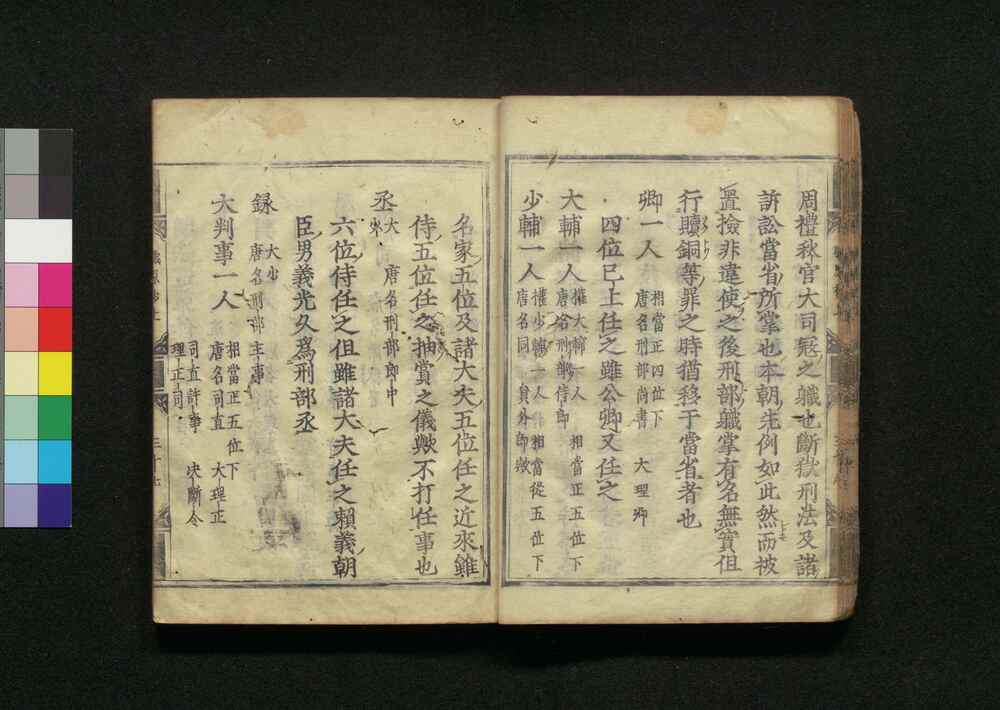 周禮秋官大司冦之軄也斷獄刑法及諸
訴訟當省所掌也本朝先例如此然而被
置撿非違使之後刑部軄掌有名無實但
行贖銅等罪之時猶移于當省者也
卿一人 相當正四位下 唐名刑部尚書 大理卿
四位已上任之雖公卿又任之
大輔一人 權大輔一人 唐名刑部侍郎 相當正五位下
少輔一人 權少輔一人 唐名同 員外郎歟 相當從五位下
名家五位及諸大夫五位任之近來雖
侍五位任之抽賞之儀歟不打任事也
丞 大少 唐名刑部郎中
六位侍任之但雖諸大夫任之賴義朝
臣男義光久爲刑部丞
録 大少 唐名刑部主事
大判事一人 相當正五位下 唐名司直 大理正
司直評事 決斷令
理正司